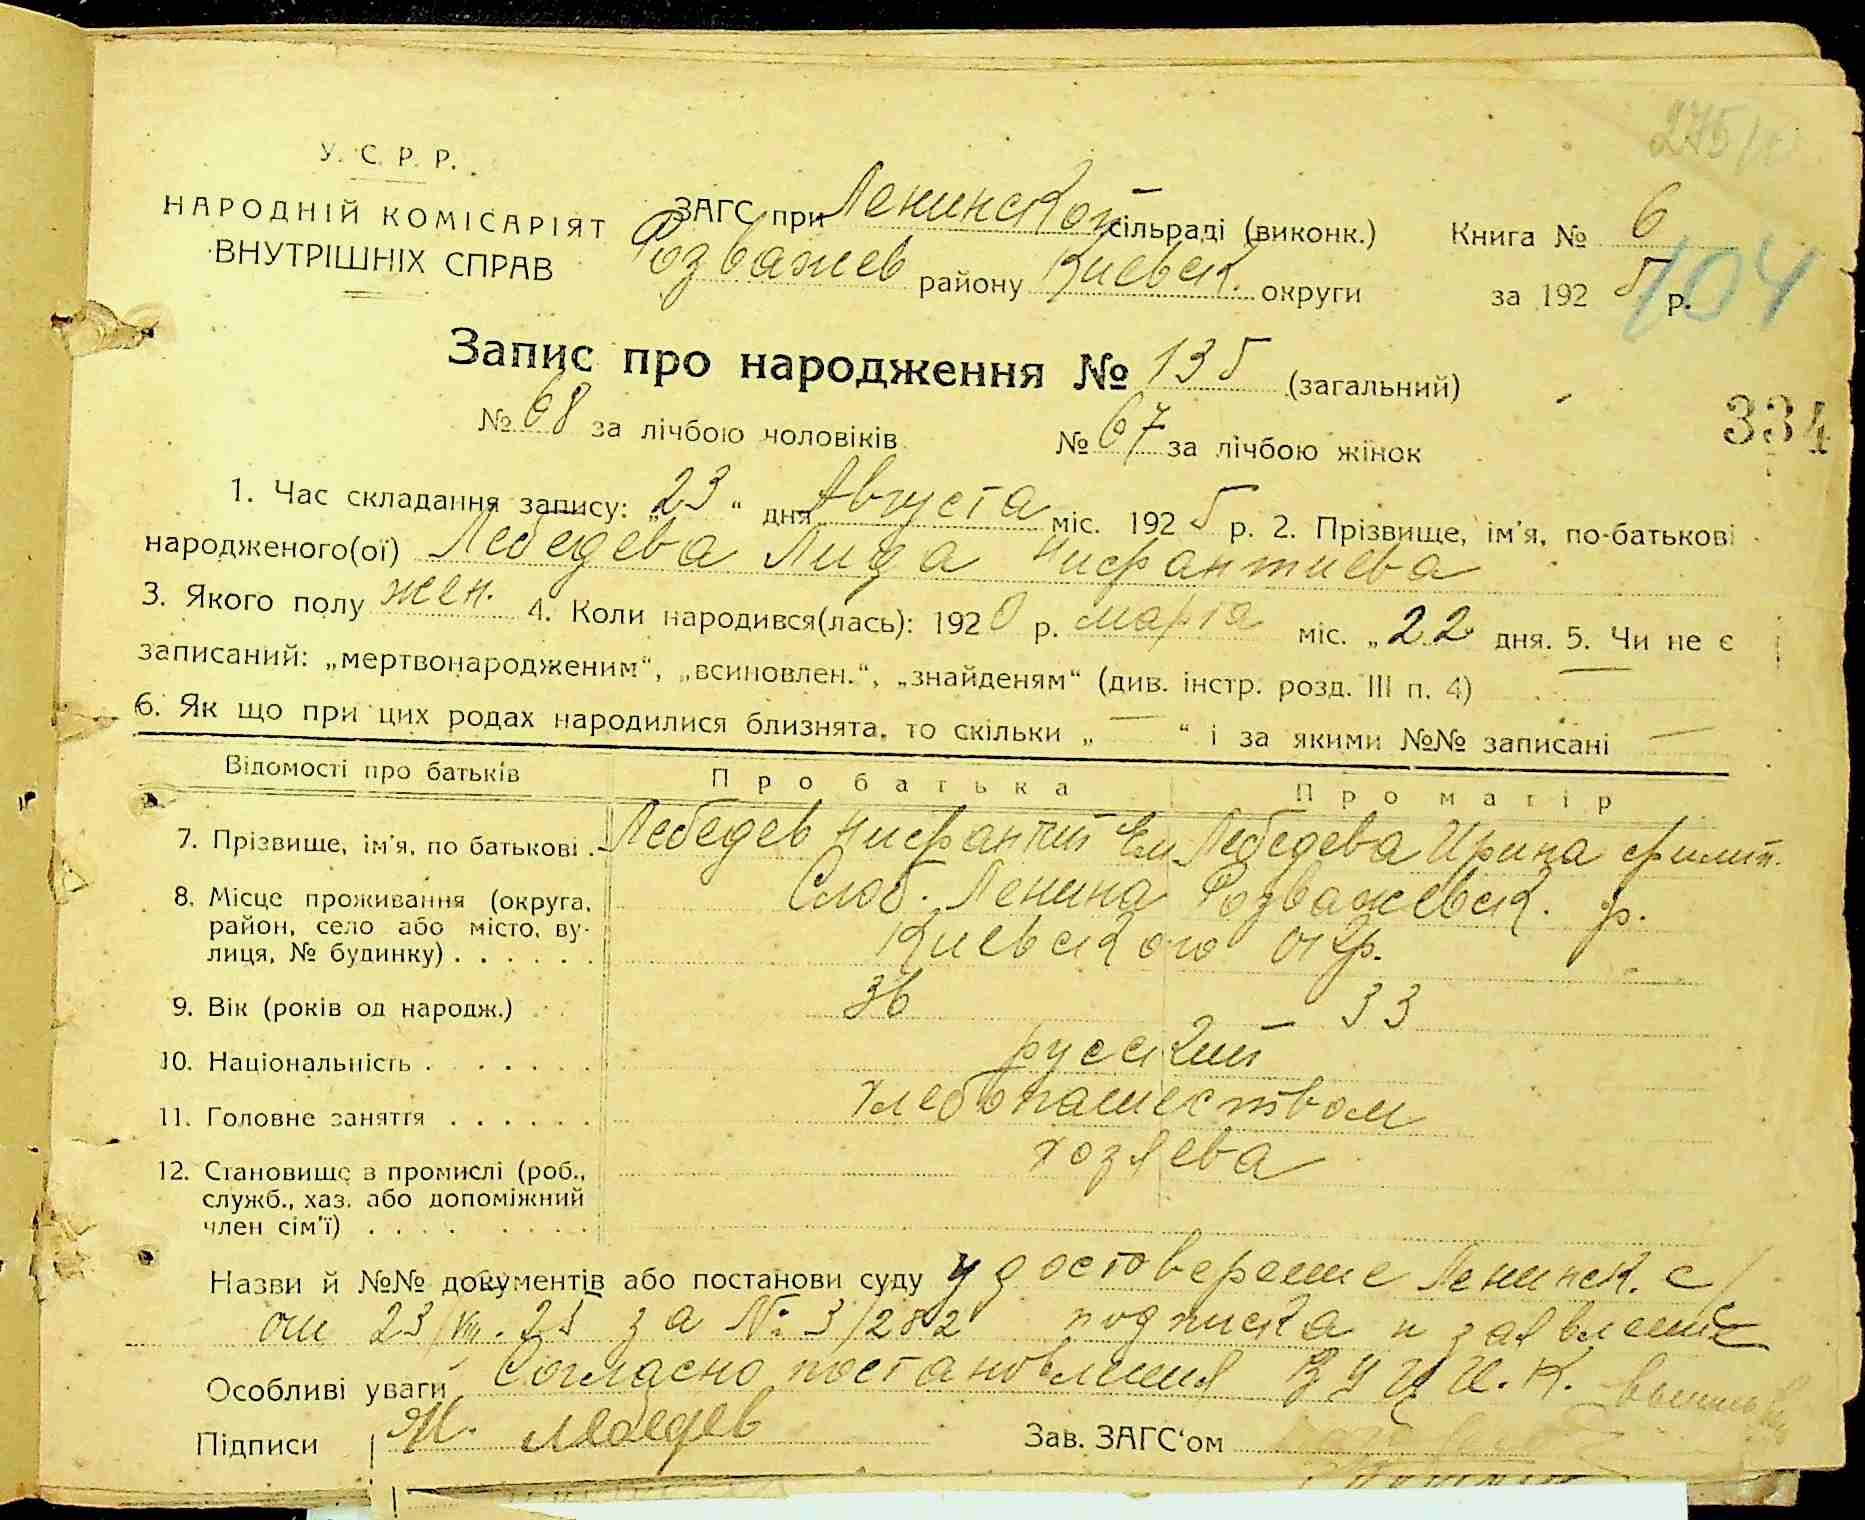 275/
У. С. Р. Р.
НАРОДНІЙ КОМІСАРІЯТ
ВНУТРІШНІХ СПРАВ
ЗАГС при Ленинской сільраді (виконк.) Книга № 6
Розважев району Киевск. округи за 1925 р.
104
Запис про народження № 135 (загальний)
№ 68 за лічбою чоловіків № 67 за лічбою жінок
334
1. Час складання запису: „23“ дня Августа міс. 1925 р. 2. Прізвище, ім'я, по-батькові
народженого(ої) Лебедева Лида Нисрантиева
3. Якого полу жен. 4. Коли народився(лась): 1920 р. марта міс. „22 дня. 5. Чи не є
записаний: „мертвонародженим“, „всиновлен.“, „знайденям“ (див. інстр. розд. III п. 4) —
6. Як що при цих родах народилися близнята, то скільки „ — “ і за якими №№ записані —
Відомості про батьків Про батька Про матір
7. Прізвище, ім'я, по батькові . Лебедев Нисрантий Ем Лебедева Ирина Филип.
8. Місце проживання (округа, Слоб. Ленина Розважевск. р.
район, село або місто, ву-
лиця, № будинку) . . . . . . Киевского окр.
9. Вік (років од народж.) . . 36 33
10. Національність . . . . . . . русский
11. Головне заняття . . . . . . хлебопашеством
12. Становище в промислі (роб., хозяева
служб., хаз. або допоміжний
член сім'ї) . . . . . . . . .
Назви й №№ документів або постанови суду удостоверение Ленинск. с/
от 23/VIII. 25 за № 3/282 подписка и заявление
Особливі уваги Согласно постановления ВУЦИ.К.
Підписи Н. Лебедев Зав. ЗАГС'ом